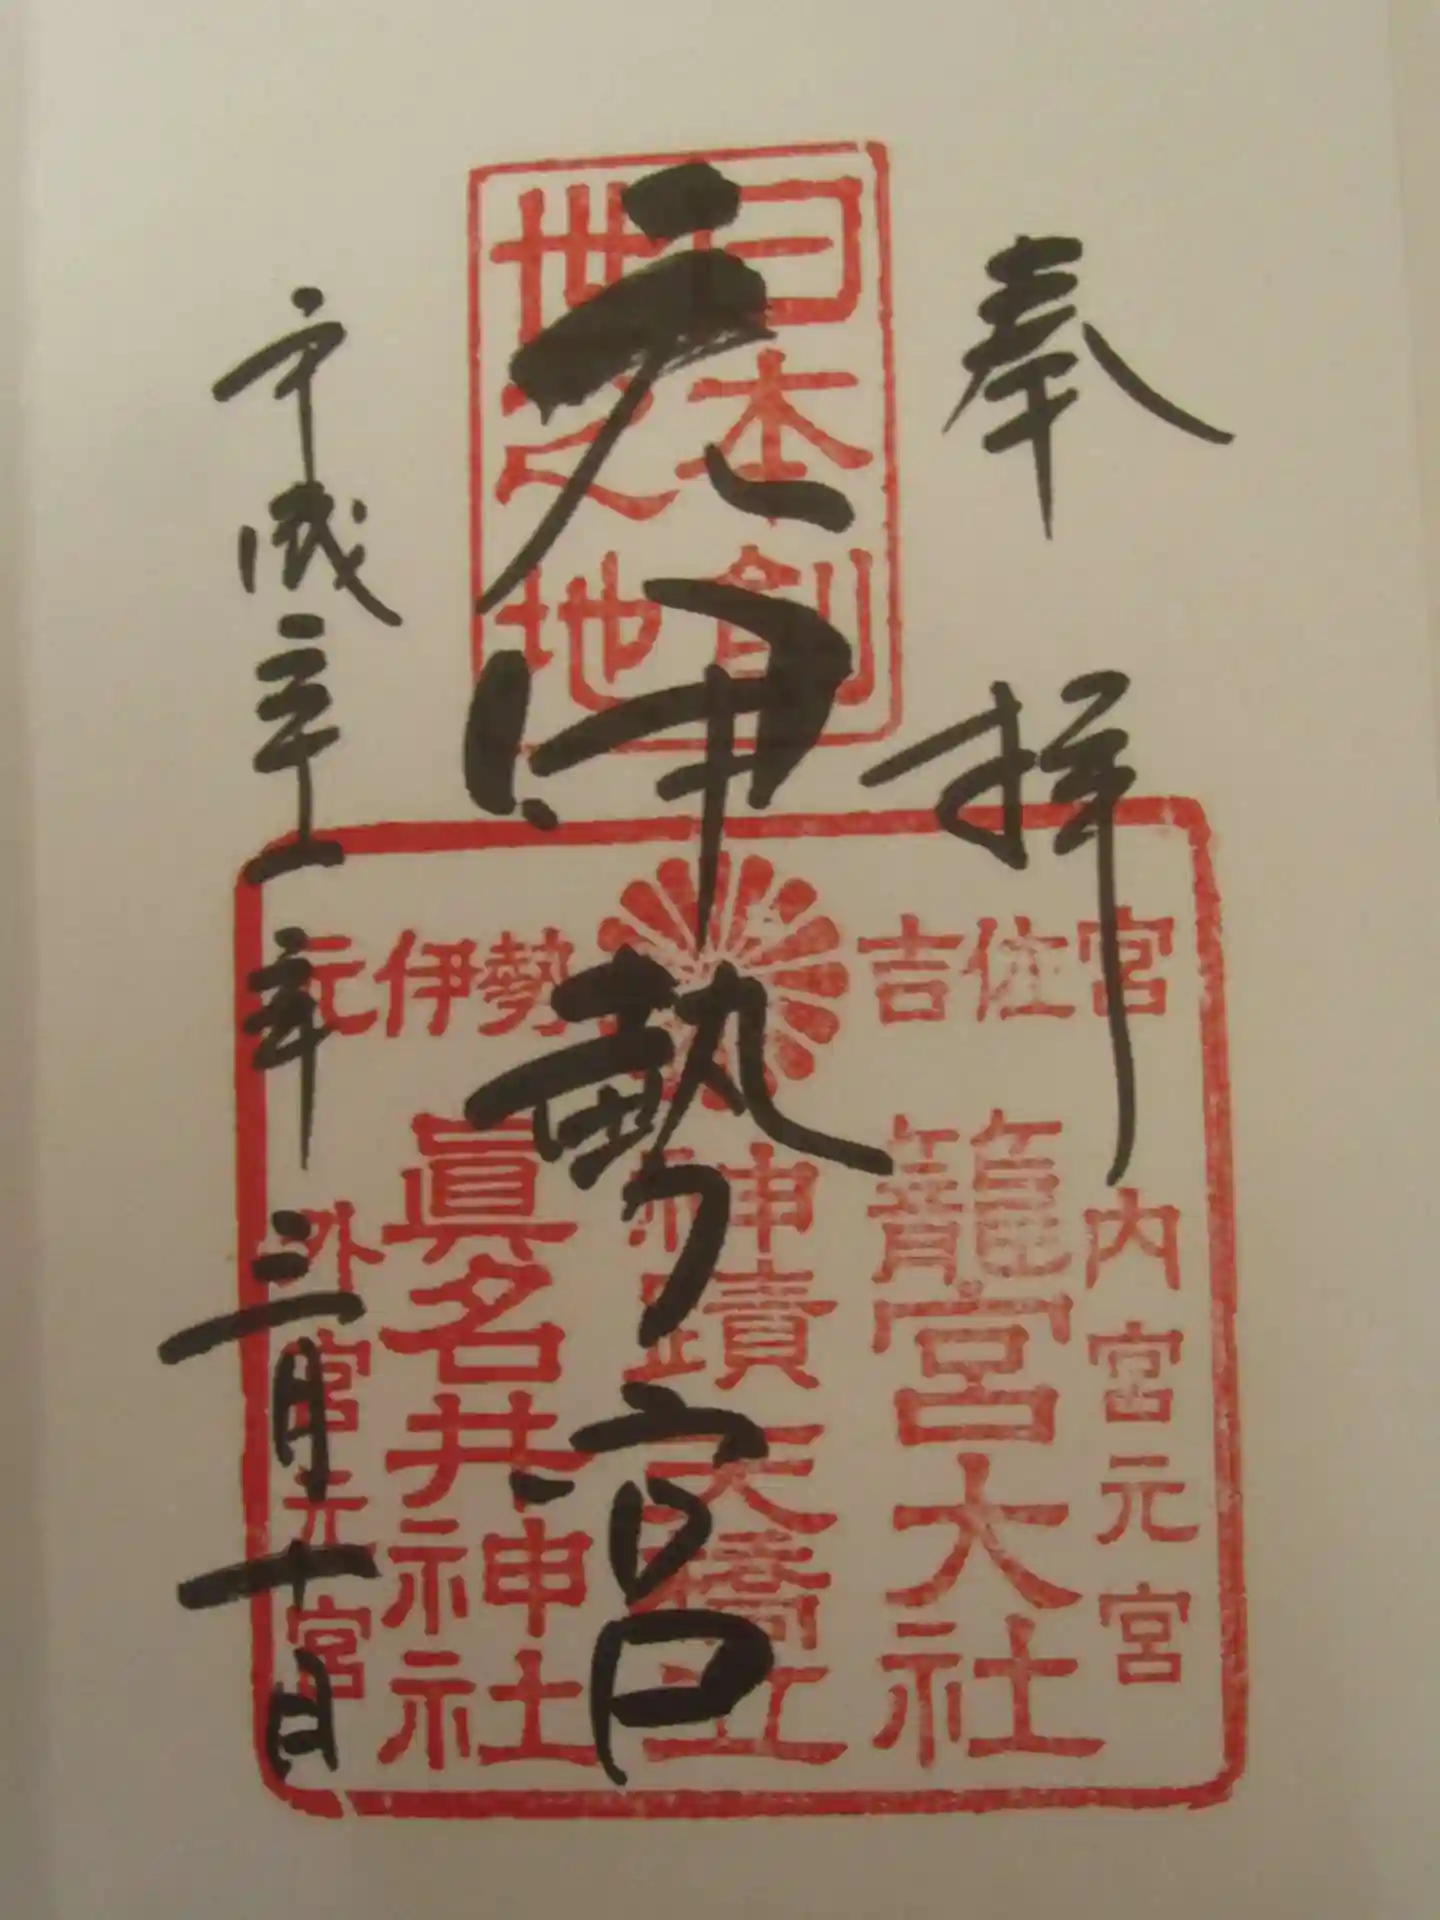 奉拝
日本創
世之地
元伊勢宮
元伊勢 吉佐宮
内宮元宮
籠宮大社
神蹟天橋立
眞名井神社
外宮元宮
平成三十一年三月十日